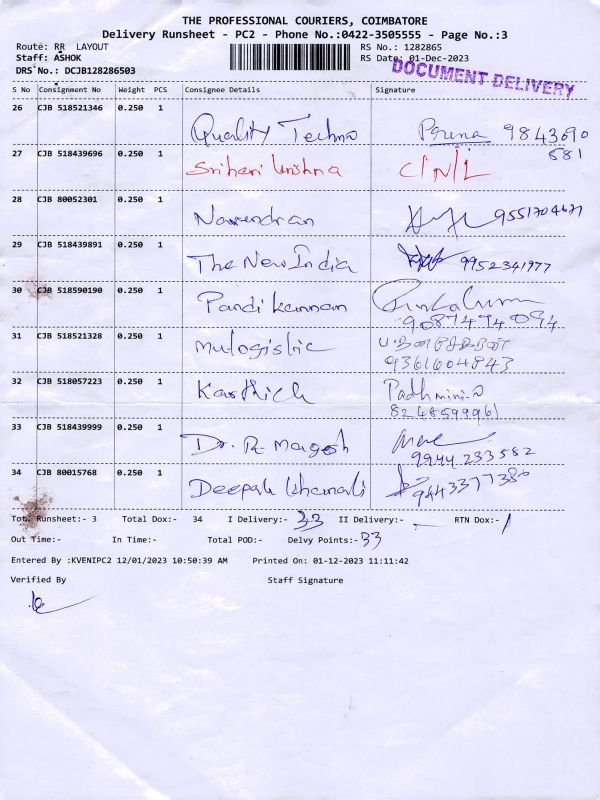 THE PROFESSIONAL COURIERS, COIMBATORE
Delivery Runsheet - PC2 - Phone No.:0422-3505555 - Page No.:3
Route: RR LAYOUT RS No.: 1282865
Staff: ASHOK RS Date: 01-Dec-2023
DRS No.: DCJB128286503
DOCUMENT DELIVERY
S No Consignment No Weight PCS Consignee Details Signature
26 CJB 518521346 0.250 1
Quality Techno 9843690
581
27 CJB 518439696 0.250 1
Srihari Krishna C/N/L
28 CJB 80052301 0.250 1
Narendran 9551704671
29 CJB 518439891 0.250 1
The New India 9952341977
30 CJB 518590190 0.250 1
Pandi Kannan
9087474094
31 CJB 518521328 0.250 1
mulogistic
9361604843
32 CJB 518057223 0.250 1
Karthick Padhmini
8248599961
33 CJB 518439999 0.250 1
Dr. R. Magesh
9944233582
34 CJB 80015768 0.250 1
Deepak 9443377380
Tot. Runsheet:- 3 Total Dox:- 34 I Delivery:- 33 II Delivery:- - RTN Dox:- 1
Out Time:- In Time:- Total POD:- Delvy Points:- 33
Entered By :KVENIPC2 12/01/2023 10:50:39 AM Printed On: 01-12-2023 11:11:42
Verified By Staff Signature